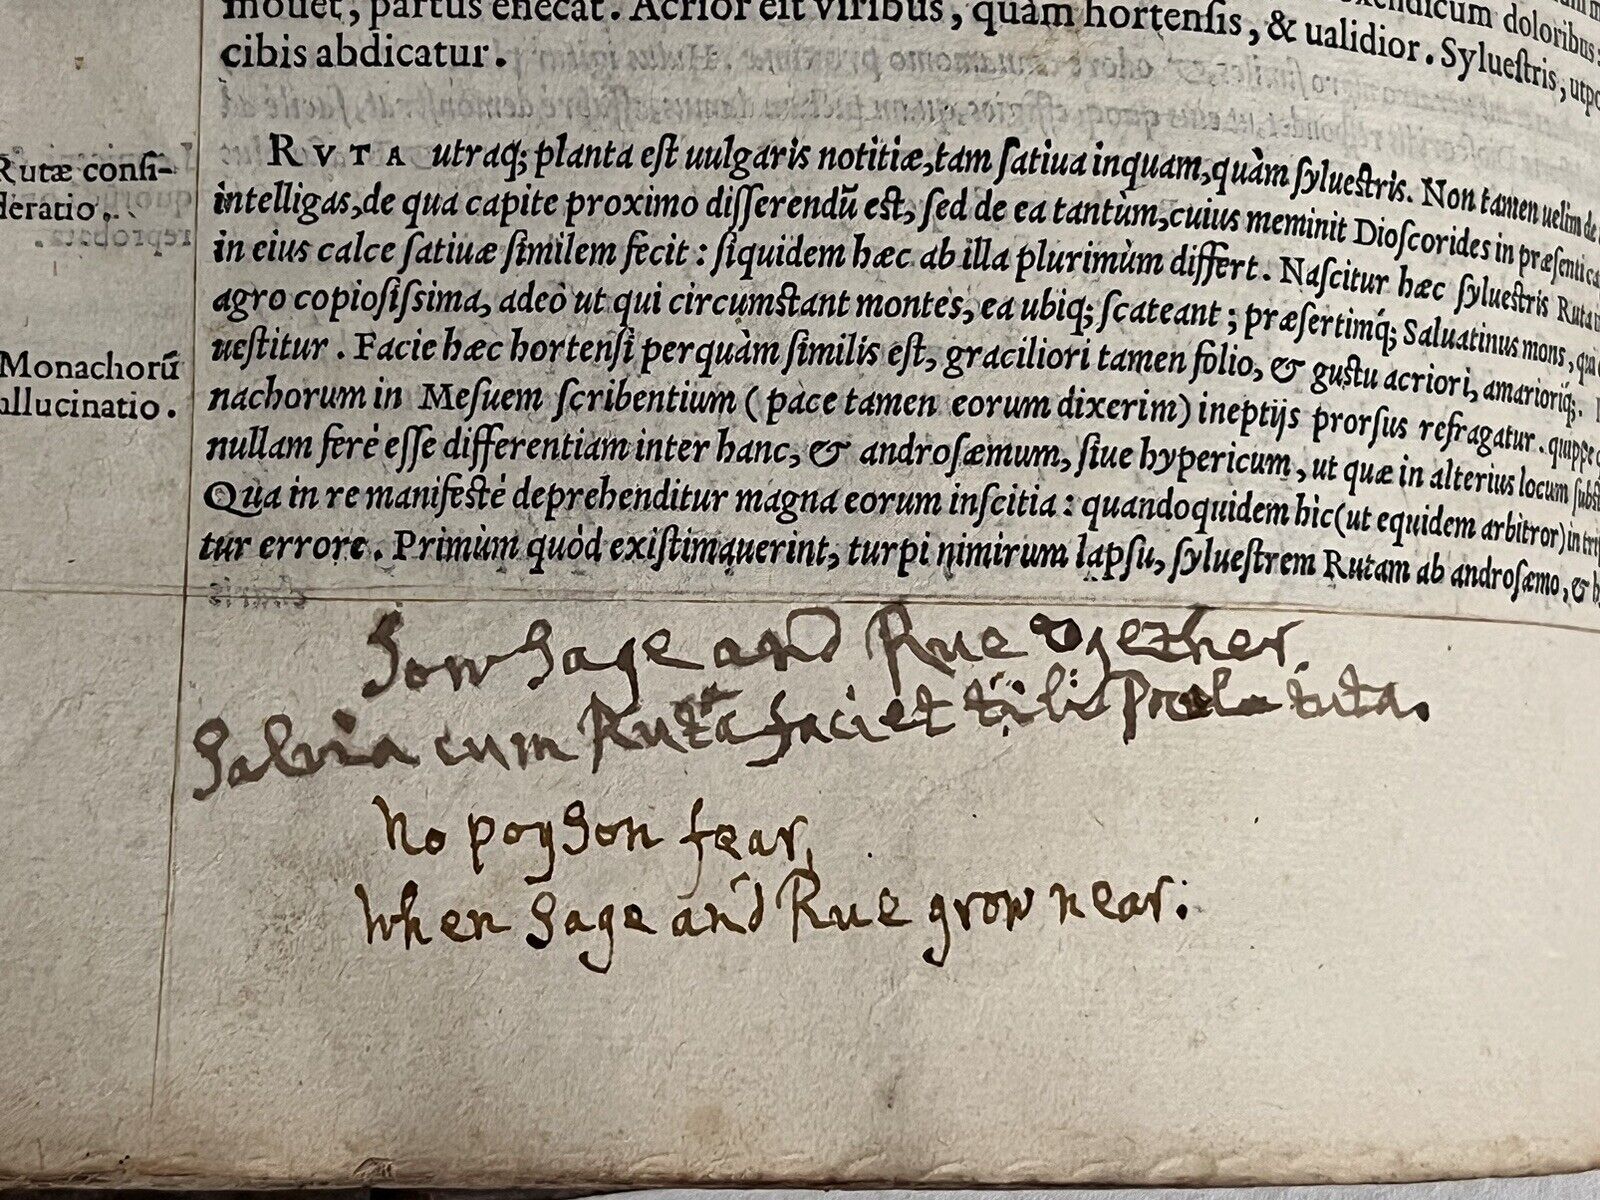 mouet, partus enecat. Acrior est viribus, quàm hortensis, & ualidior. Syluestris, utpo
dicum doloribus:
cibis abdicatur.
Rutæ consi-
deratio.
RVTA utraq; planta est uulgaris notitiæ, tam satiua inquam, quàm syluestris. Non tamen uelim de
intelligas, de qua capite proximo disserendũ est, sed de ea tantùm, cuius meminit Dioscorides in præsenti ca
in eius calce satiuæ similem fecit: siquidem hæc ab illa plurimùm differt. Nascitur hæc syluestris Ruta
agro copiosissima, adeò ut qui circumstant montes, ea ubiq; scateant; præsertimq́; Saluatinus mons, qui
Monachorũ
allucinatio.
uestitur. Facie hæc hortensi perquàm similis est, graciliori tamen folio, & gustu acriori, amarioriq́;.
nachorum in Mesuem scribentium (pace tamen eorum dixerim) ineptijs prorsus refragatur. quippe
nullam ferè esse differentiam inter hanc, & androsæmum, siue hypericum, ut quæ in alterius locum subst
Qua in re manifestè deprehenditur magna eorum inscitia: quandoquidem hic (ut equidem arbitror) in tri
tur errore. Primùm quòd existimauerint, turpi nimirum lapsu, syluestrem Rutam ab androsæmo, & h
Sow Sage and Rue together
Salvia cum Ruta faciet tibi Pocula tuta.
No poyson fear,
When Sage and Rue grow near: